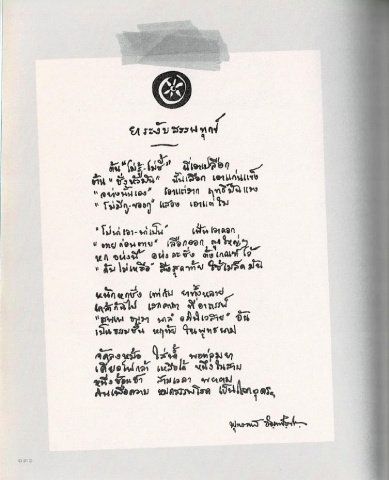 ยาระงับสรรพทุกข์
ต้น "ไม่รู้-ไม่ชี้" นี่เอาเปลือก
ต้น "ชั่งหัวมัน" นั้นเลือก เอาแก่นแข็ง
"อย่างนั้นเอง" เอาแต่ราก ฤทธิ์มันแรง
"ไม่มีกู-ของกู" แสวง เอาแต่ใบ
"ไม่น่าเอา-น่าเป็น" เฟ้นเอาดอก
"ตายก่อนตาย" เลือกออก ลูกใหญ่ๆ
หก อย่างนี้ อย่างละชั่ง ตั้งเกณฑ์ไว้
"ดับไม่เหลือ" สิ่งสุดท้าย ใช้เมล็ดมัน
หนักหกชั่ง เท่ากับ ยาทั้งหลาย
เคล้ากันไป เสกคาถา ที่อาถรรพ์
"สพฺเพ ธมฺมา นาลํ อภินิเวสาย" อัน
เป็นธรรมชั้น หฤทัย ในพุทธนาม
จัดลงหม้อ ใส่น้ำ พอท่วมยา
เคี่ยวไฟกล้า เหลือได้ หนึ่งในสาม
หนึ่งช้อนชา สามเวลา พยายาม
กินเพื่อความ หมดสรรพโรค เป็นโลกอุดรฯ
พุทธทาส อินฺทปญฺโญ